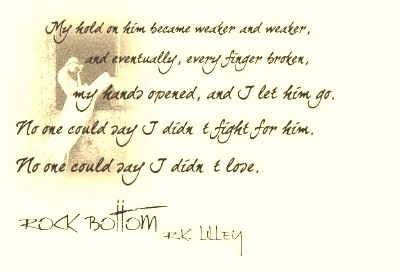 My hold on him became weaker and weaker,
and eventually, every finger broken,
my hands opened, and I let him go.
No one could say I didn t fight for him.
No one could say I didn t lose.
ROCK BOTTOM R.K. LILLEY